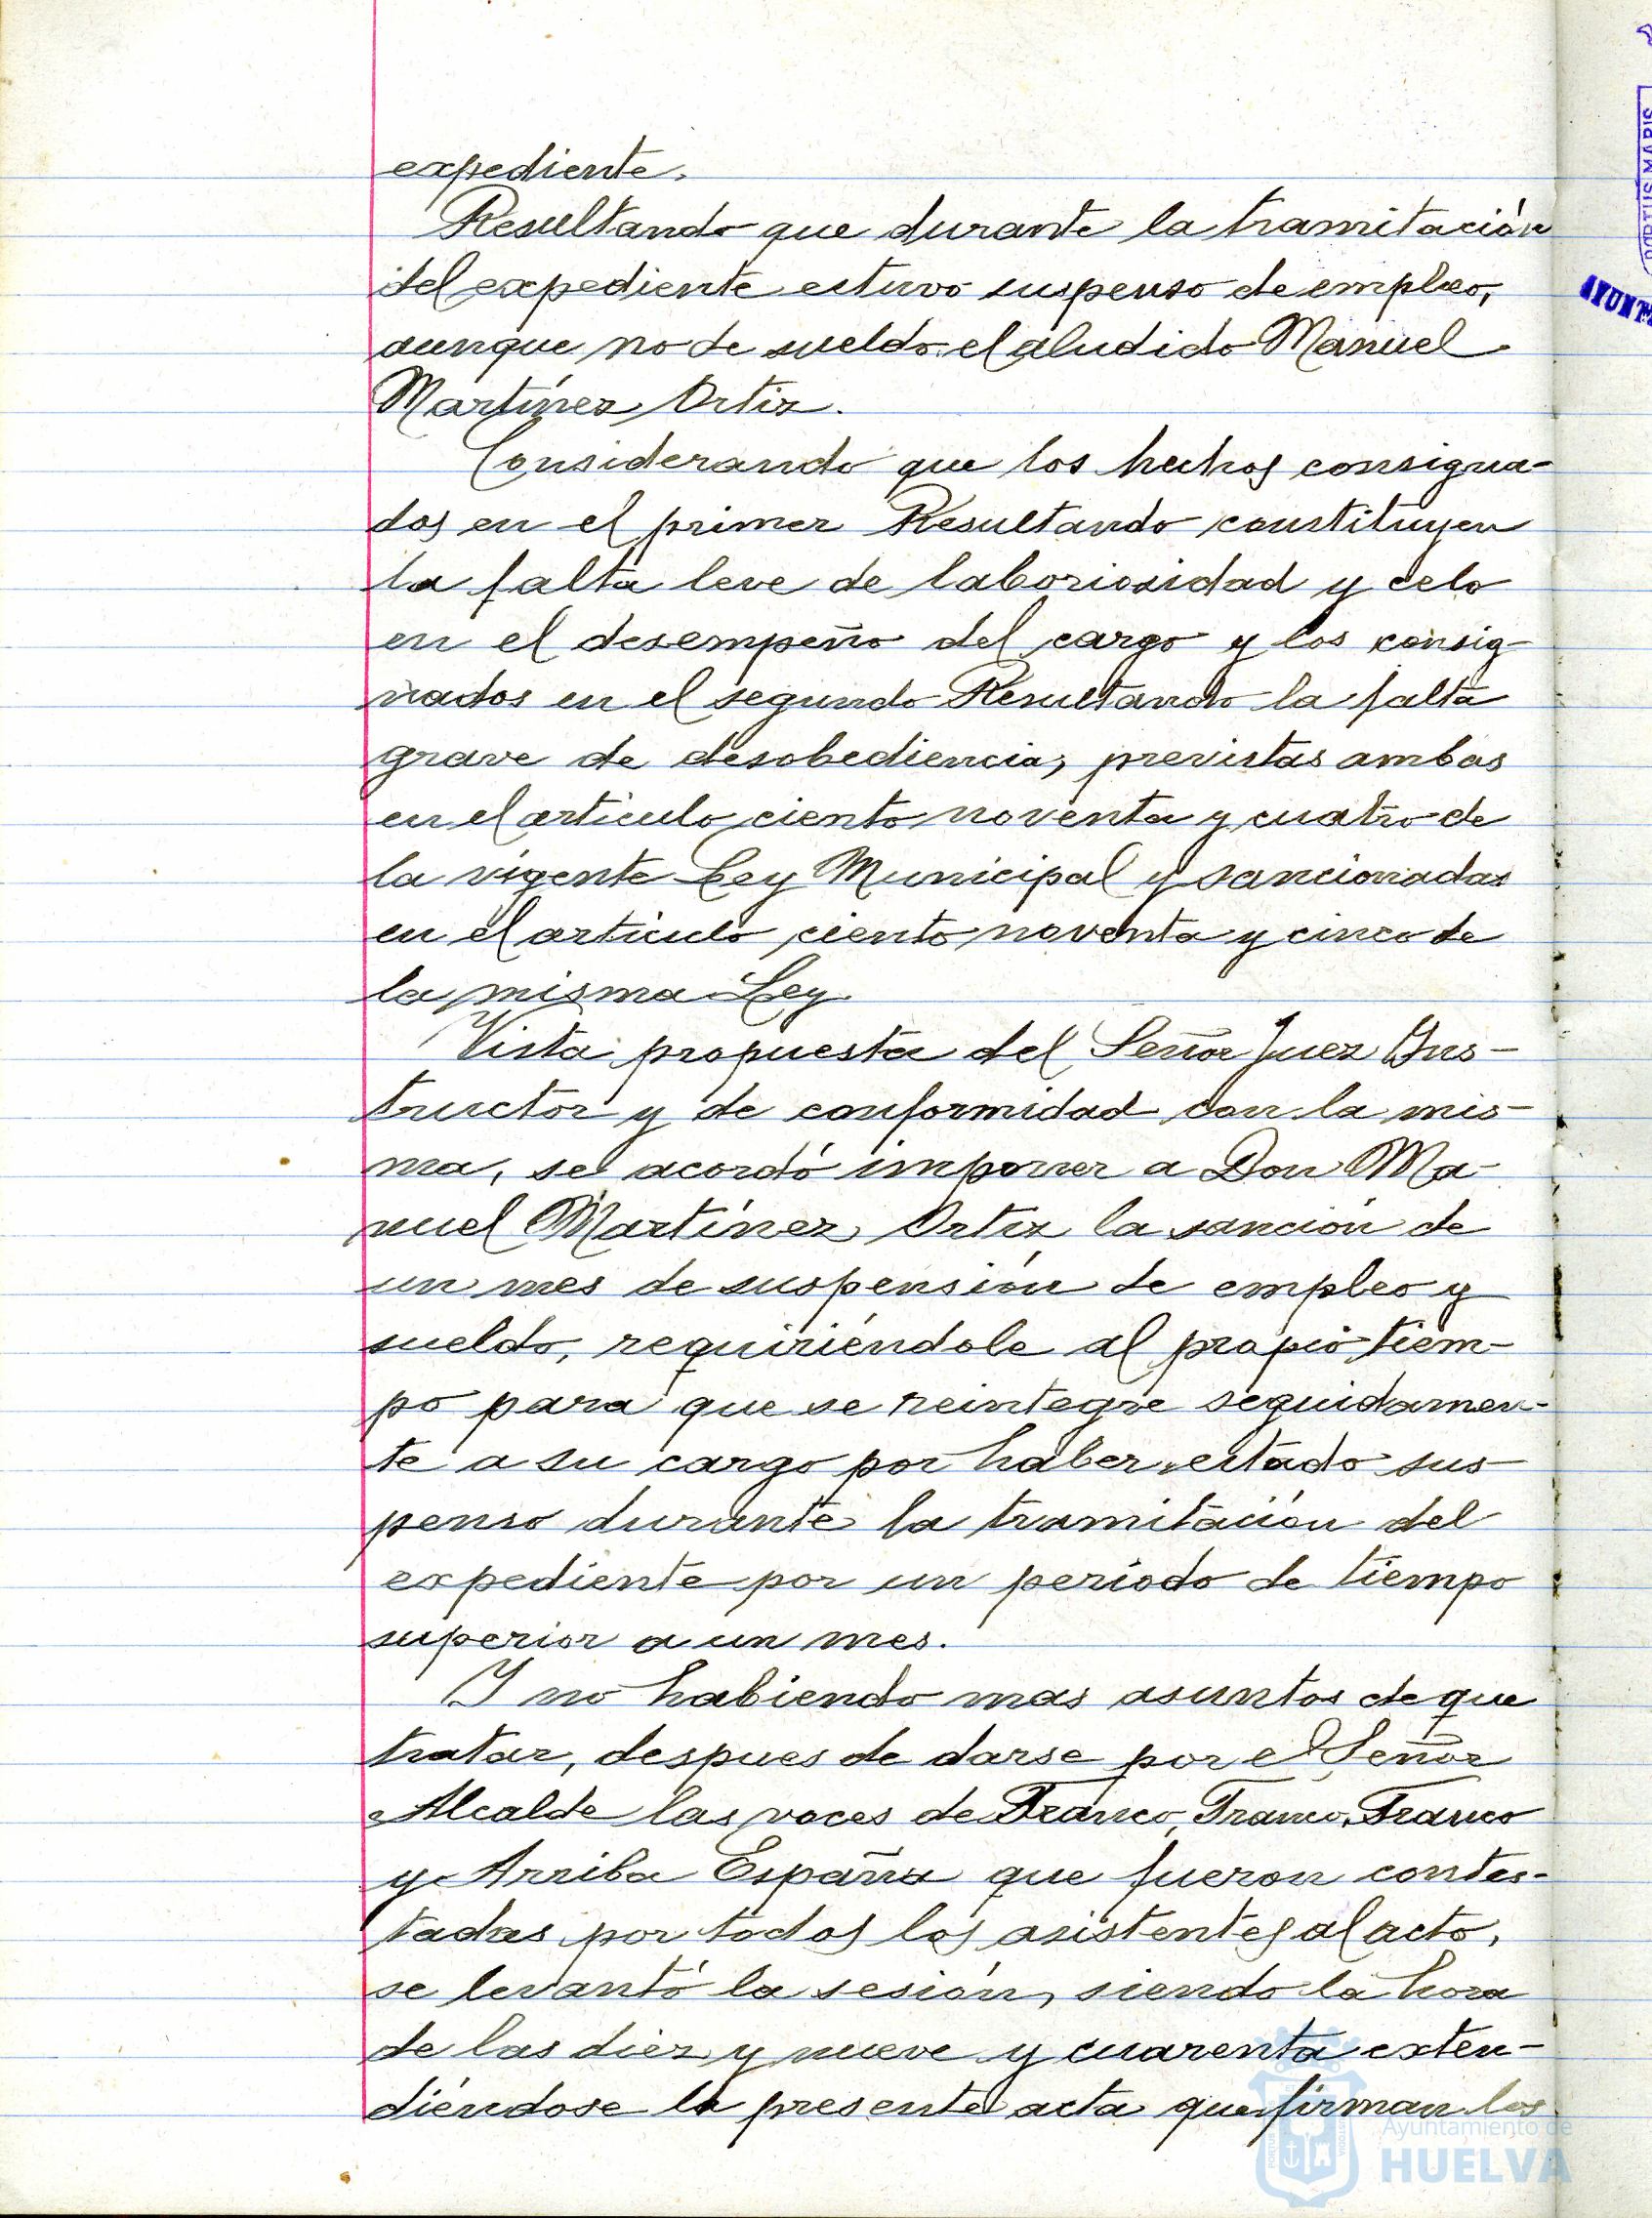 expediente.
Resultando que durante la tramitación
del expediente estuvo suspenso de empleo,
aunque no de sueldo el aludido Manuel
Martínez Ortiz.
Considerando que los hechos consigna-
dos en el primer Resultando constituyen
la falta leve de laboriosidad y celo
en el desempeño del cargo y los consig-
nados en el segundo Resultando la falta
grave de desobediencia, previstas ambas
en el articulo ciento noventa y cuatro de
la vigente Ley Municipal y sancionadas
en el artículo ciento noventa y cinco de
la misma Ley.
Vista propuesta del Señor Juez Ins-
tructor y de conformidad con la mis-
ma, se acordó imponer a Don Ma-
nuel Martínez Ortiz la sanción de
un mes de suspensión de empleo y
sueldo, requiriéndole al propio tiem-
po para que se reintegre seguidamen-
te a su cargo por haber estado sus-
penso durante la tramitación del
expediente por un período de tiempo
superior a un mes.
Y no habiendo mas asuntos de que
tratar, despues de darse por el Señor
Alcalde las voces de Franco, Franco, Franco
y Arriba España que fueron contes-
tadas por todos los asistentes al acto,
se levantó la sesión, siendo la hora
de las diez y nueve y cuarenta exten-
diéndose la presente acta que firman los
Ayuntamiento de
HUELVA
PORTUS MARIS
AYUNT